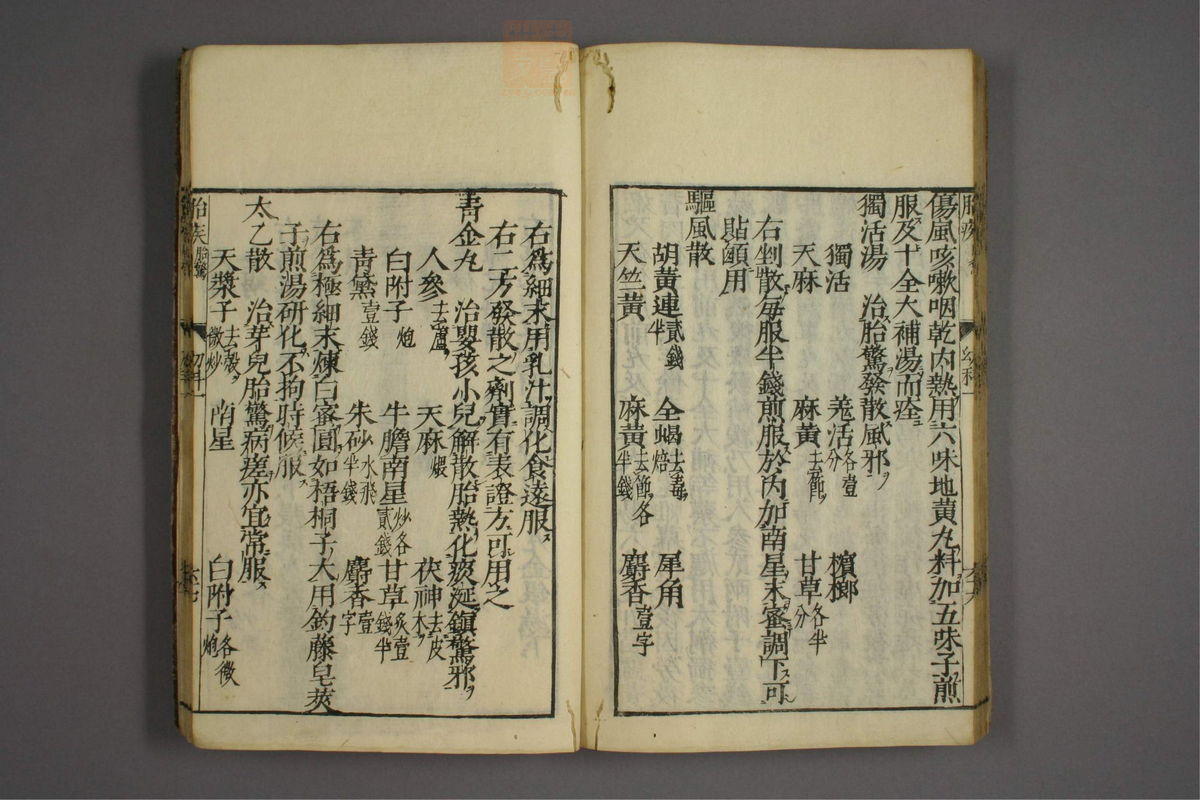 傷風咳嗽咽乾内熱用六味地黄丸料加五味子煎
服及十全大補湯而痊
獨活湯　治胎驚發散風邪
獨活　羗活各壹分　檳榔
天麻　麻黄去節　甘草各半分
右剉散每服半錢煎服於内加南星末蜜調下可
貼顖用
驅風散
胡黄連貳錢半　全蝎去毒焙　犀角
天竺黄　麻黄去節各半錢　麝香壹字
右爲細末用乳汁調化食遠服
右二方發散之劑實有表證方可用之
青金丸　治嬰孩小兒解散胎熱化痰涎鎮驚邪
人參去蘆　天麻煨　茯神去皮木
白附子炮　牛膽南星炒各貳錢　甘草炙壹錢半
青黛壹錢　朱砂水飛半錢　麝香壹字
右爲極細末煉白蜜圓如梧桐子大用釣藤皂莢
子煎湯研化不拘時候服
太乙散　治芽兒胎驚病瘥亦宜常服
天漿子去殼微炒　南星　白附子各微炮
胎疾胎驚